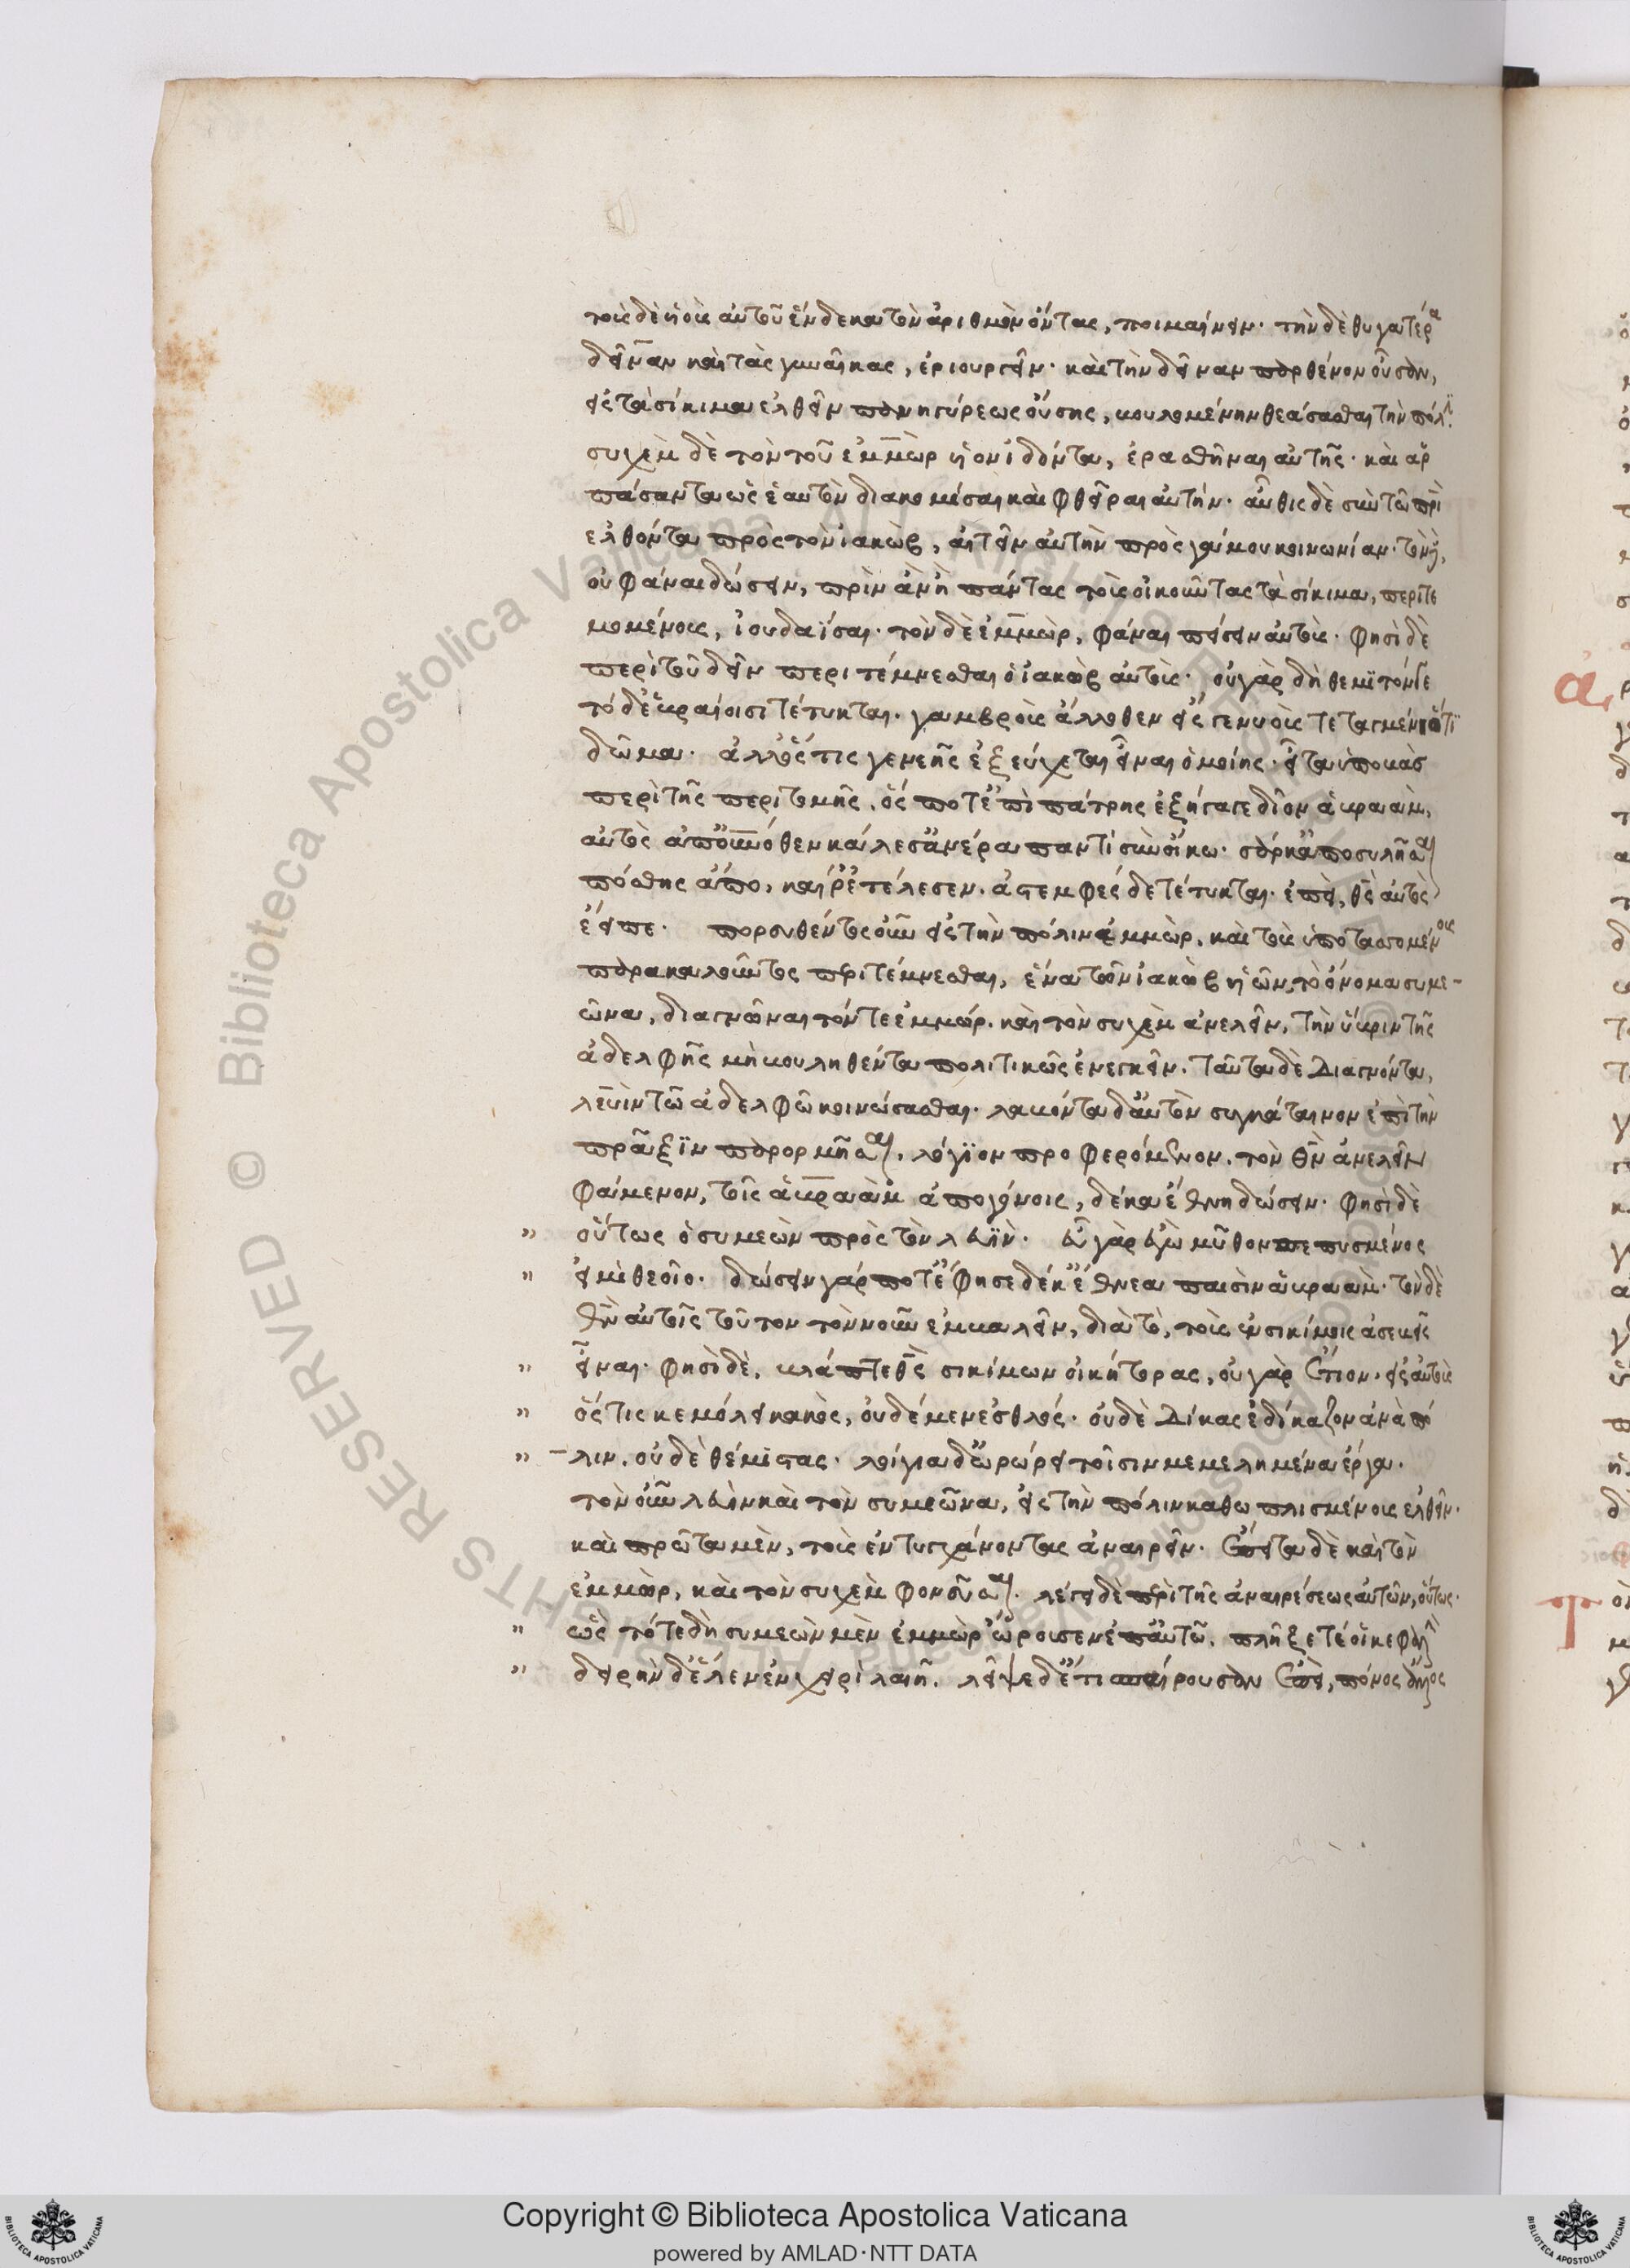 τοὺς δὲ υἱοὺς αὐτοῦ ἕνδεκα τὸν ἀριθμὸν ὄντας, ποιμαίνειν· τὴν δὲ θυγατέρα
δεῖναν καὶ τὰς γυναῖκας, ἐριουργεῖν· καὶ τὴν δεῖναν παρθένον οὖσαν,
εἰς τὰ σίκιμα ἐλθεῖν πανηγύρεως οὔσης, βουλομένην θεάσασθαι τὴν πόλιν.
συχὲμ δὲ τὸν τοῦ ἐμμὼρ υἱὸν ἰδόντα, ἐρασθῆναι αὐτῆς· καὶ ἁρ
πάσαντα ὡς ἑαυτὸν διακομίσαι καὶ φθεῖραι αὐτήν· αὖθις δὲ σὺν τῶ πρὶ
ελθόντα πρὸς τὸν ἰακὼβ, αἰτεῖν αὐτὴν πρὸς γάμου κοινωνίαν· τὸν δὲ,
οὐ φάναι δώσειν, πρὶν ἂν ἢ πάντας τοὺς οἰκοῦντας τὰ σίκιμα, περιτε
μομένους, ἰουδαΐσαι· τὸν δὲ ἐμμὼρ, φάναι πείσειν αὐτούς· φησὶ δὲ
περὶ τοῦ δεῖν περιτέμνεσθαι ὁ ἰακὼβ αὐτούς· οὐ γὰρ δὴ θεμϊτόν γε
τόδ ἑβραίοισι τέτυκται· γαμβροὺς ἄλλοθεν εἴς γε νυοὺς τε ἀγέμεν ποτὶ
δῶμα· ἀλλ ὅς τις γενεῆς ἐξεύχεται εἶναι ὁμοίης· εἶτα ὑποβὰς
περὶ τῆς περιτομῆς. ὅς ποτ ἐπὶ πάτρης ἐξήγαγε δῖον ἁβραὰμ,
αὐτὸς ἀπ οὐνόθεν κάλεσ ἀνέρα παντὶ σὺν οἴκω· σάρκ ἀποσυλῆσαι
πόσθης ἄπο, καί ῥ ἐτέλεσεν. ἀστεμφὲς δὲ τέτυκται· ἐπεὶ, θς αὐτὸς
ἔειπε· πορευθέντος οὖν εἰς τὴν πόλιν ἐμμὼρ, καὶ τοὺς ὑποτασσομένους
παρακαλοῦντος περιτέμνεσθαι, ἕνα τῶν ἰακὼβ υἱῶν, τὸ ὄνομα συμε-
ῶνα, διαγνῶναι τόν τε ἐμμώρ. καὶ τὸν συχὲμ ἀνελεῖν, τὴν ὕβριν τῆς
ἀδελφῆς μὴ βουληθέντα πολιτικῶς ἐνεγκεῖν. ταῦτα δὲ διαγνόντα,
λευὶν τῶ ἀδελφῶ κοινώσασθαι· λαβόντα δ αὐτὸν συγκάταινον ἐπὶ τὴν
πρᾶξϊν παρορμῆσαι, λόγϊον προφερόμενον, τὸν θν ἀνελεῖν
φάμενον, τοῖς ἁβραὰμ ἀπογόνοις, δέκα ἔθνη δώσειν· φησὶ δὲ
" οὕτως ὁ συμεὼν πρὸς τὸν λευϊν· εὖ γὰρ ἐγὼ μῦθον πεπυσμένος
" εἰμὶ θεοῖο. δώσειν γάρ ποτ ἔφησε δέκ ἔθνεα παισὶν ἁβραάμ· τὸν δὲ
θν αὐτοῖς τοῦτον τὸν νοῦν ἐμβαλεῖν, διὰ τὸ, τοὺς ἐν σικίμοις ἀσεβεῖς
" εἶναι· φησὶ δὲ, βλάπτε θς σικίμων οἰκήτορας, οὐ γὰρ ἔτιον· εἰς αὐτοὺς
" ὅς τις κε μόλει κακὸς, οὐδὲ μὲν ἐσθλός· οὐδὲ δίκας ἐδίκαζον ἀνὰ πό
" -λιν. οὐδὲ θέμϊστας· λοίγια δ ὠρώρει τοῖσιν μεμελημένα ἔργα·
τὸν οὖν λευὶν καὶ τὸν συμεῶνα, εἰς τὴν πόλιν καθωπλισμένους ἐλθεῖν·
καὶ πρῶτα μὲν, τοὺς ἐντυγχάνοντας ἀναιρεῖν· ἔπειτα δὲ καὶ τὸν
ἐμμὼρ, καὶ τὸν συχὲμ φονεῦσαι. λέγει δὲ περὶ τῆς ἀναιρέσεως αὐτῶν, οὕτως·
" ὡς τότε δὴ συμεὼν μὲν ἐμμὼρ ὤρουσεν ἐπ αὐτῶ. πλῆξέ τέ οἱ κεφαλὴν
" δειρὴν δ ἕλεν ἐν χειρὶ λαιῆ. λεῖψε δ ἔτι σπαίρουσαν ἐπεὶ, πόνος ἄλλος